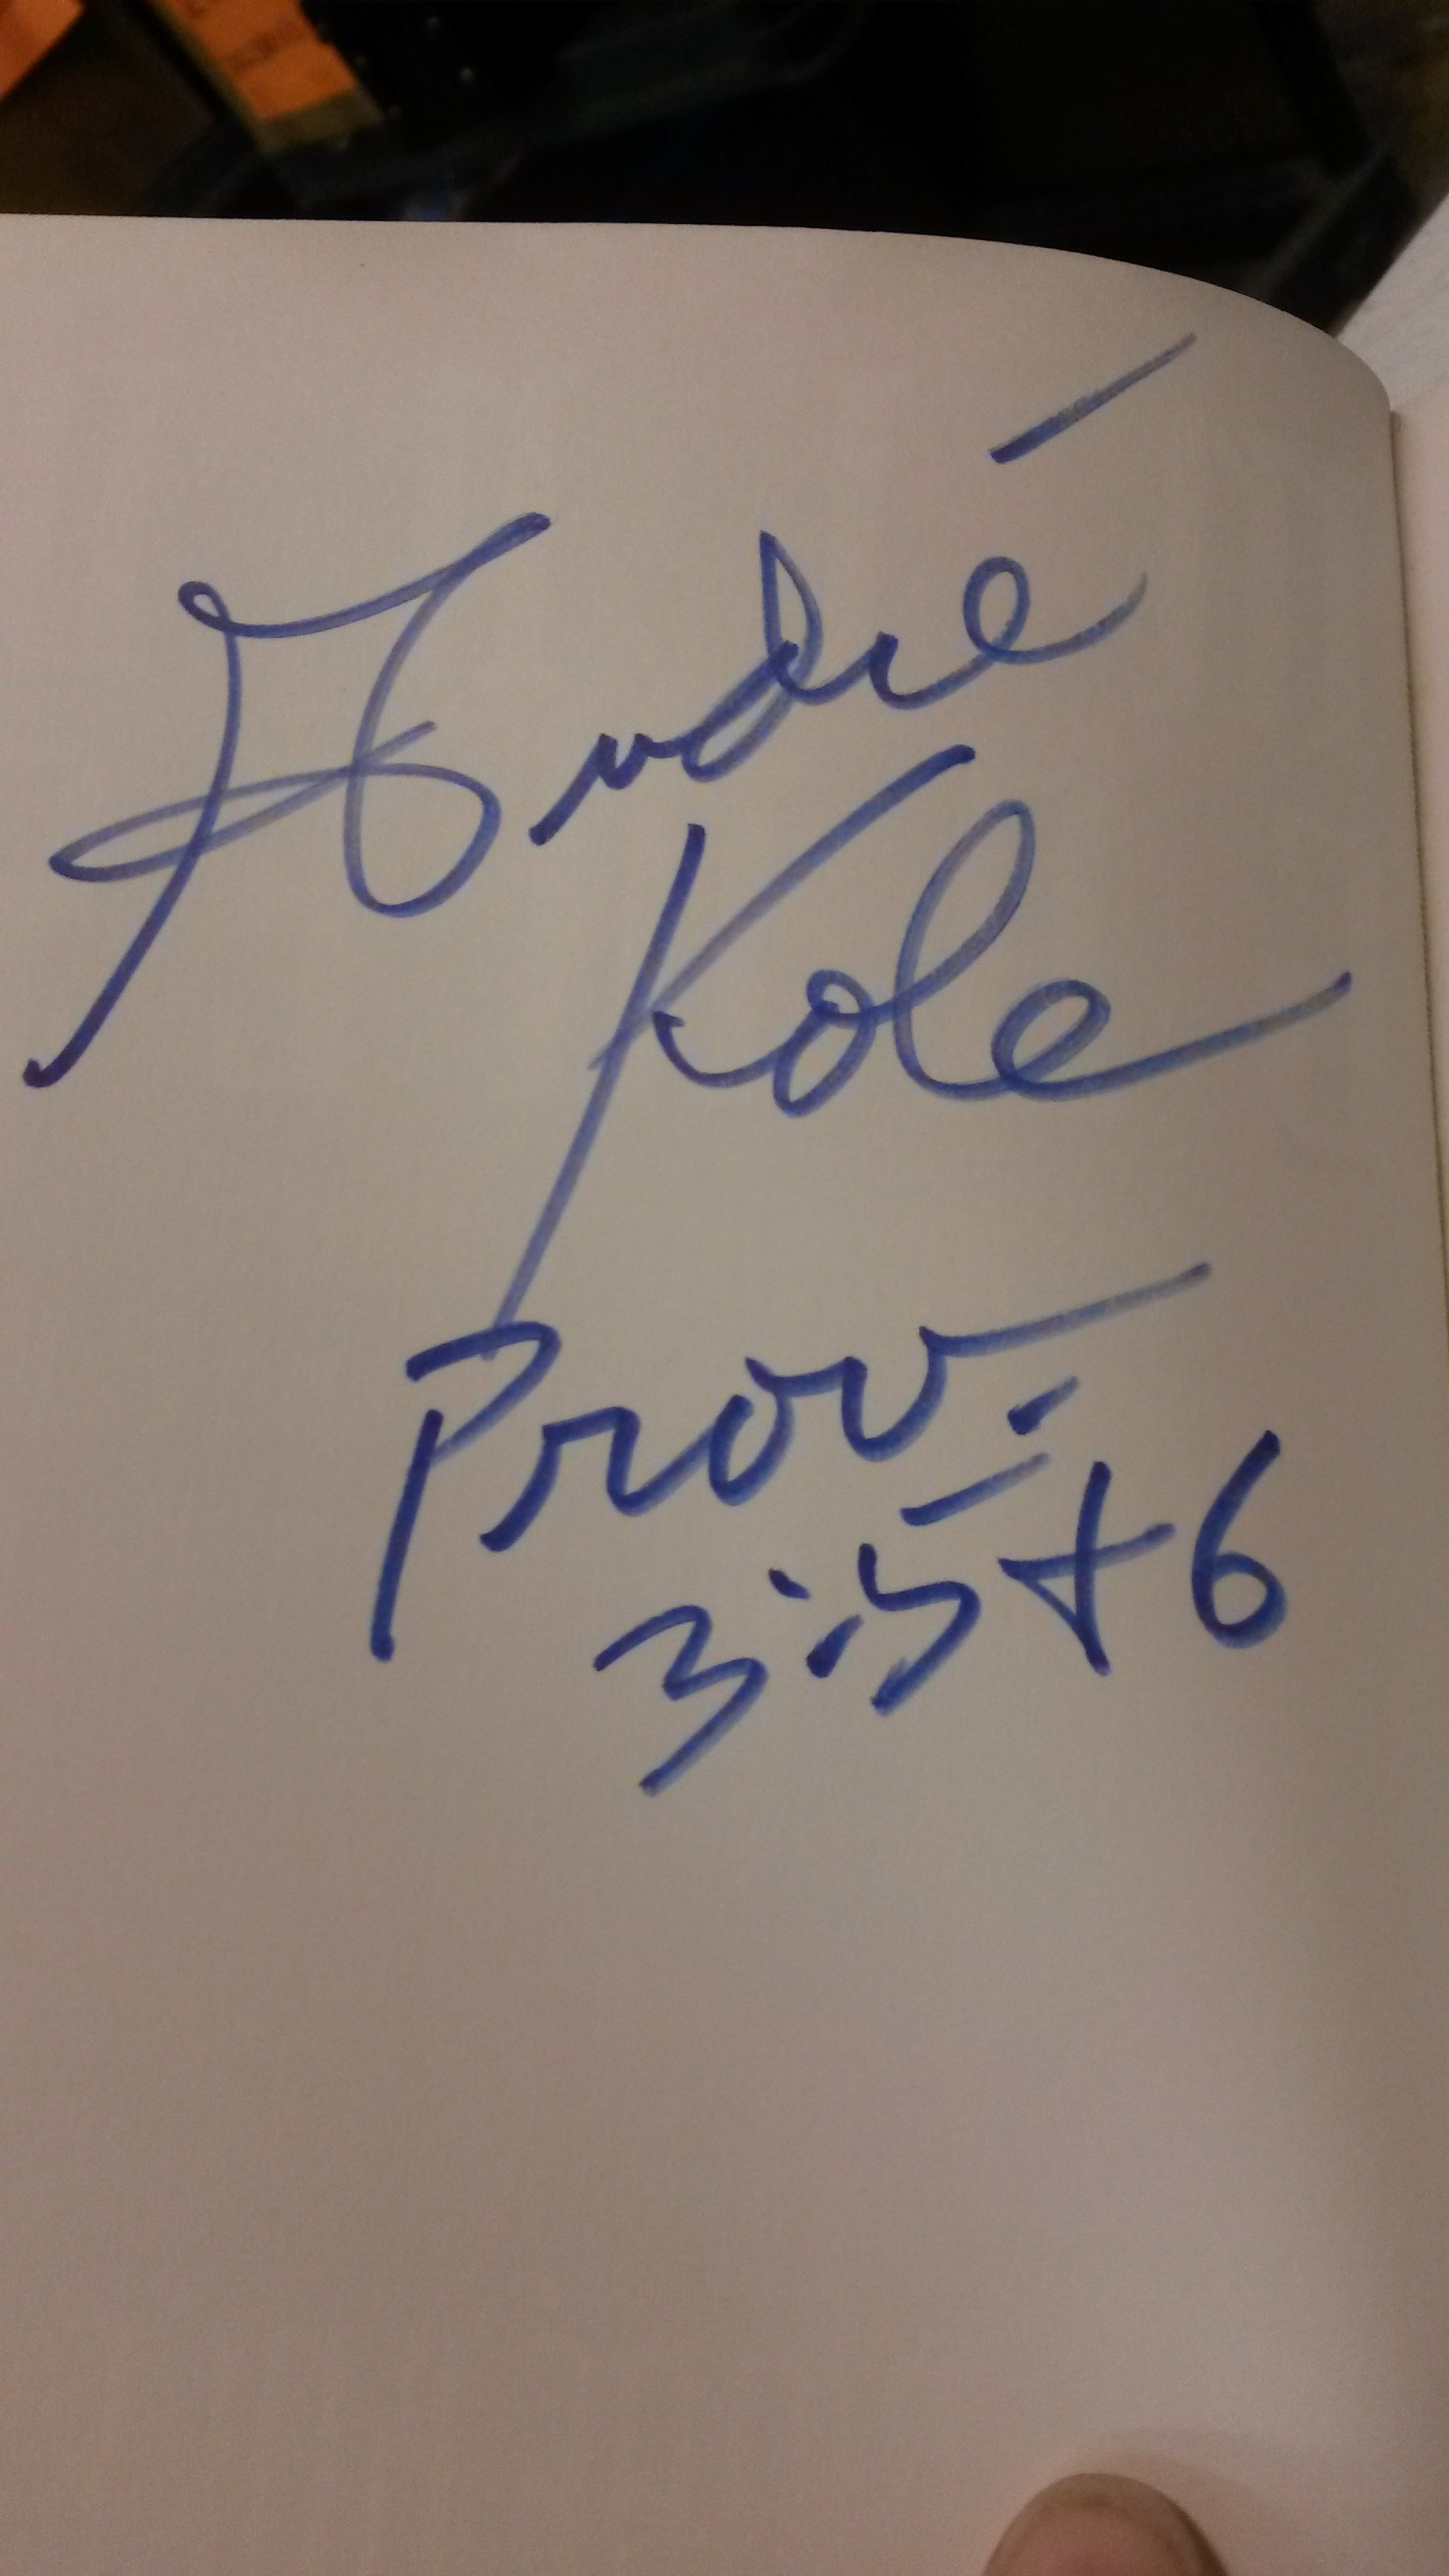 André
Kole
Prov.
3:5+6